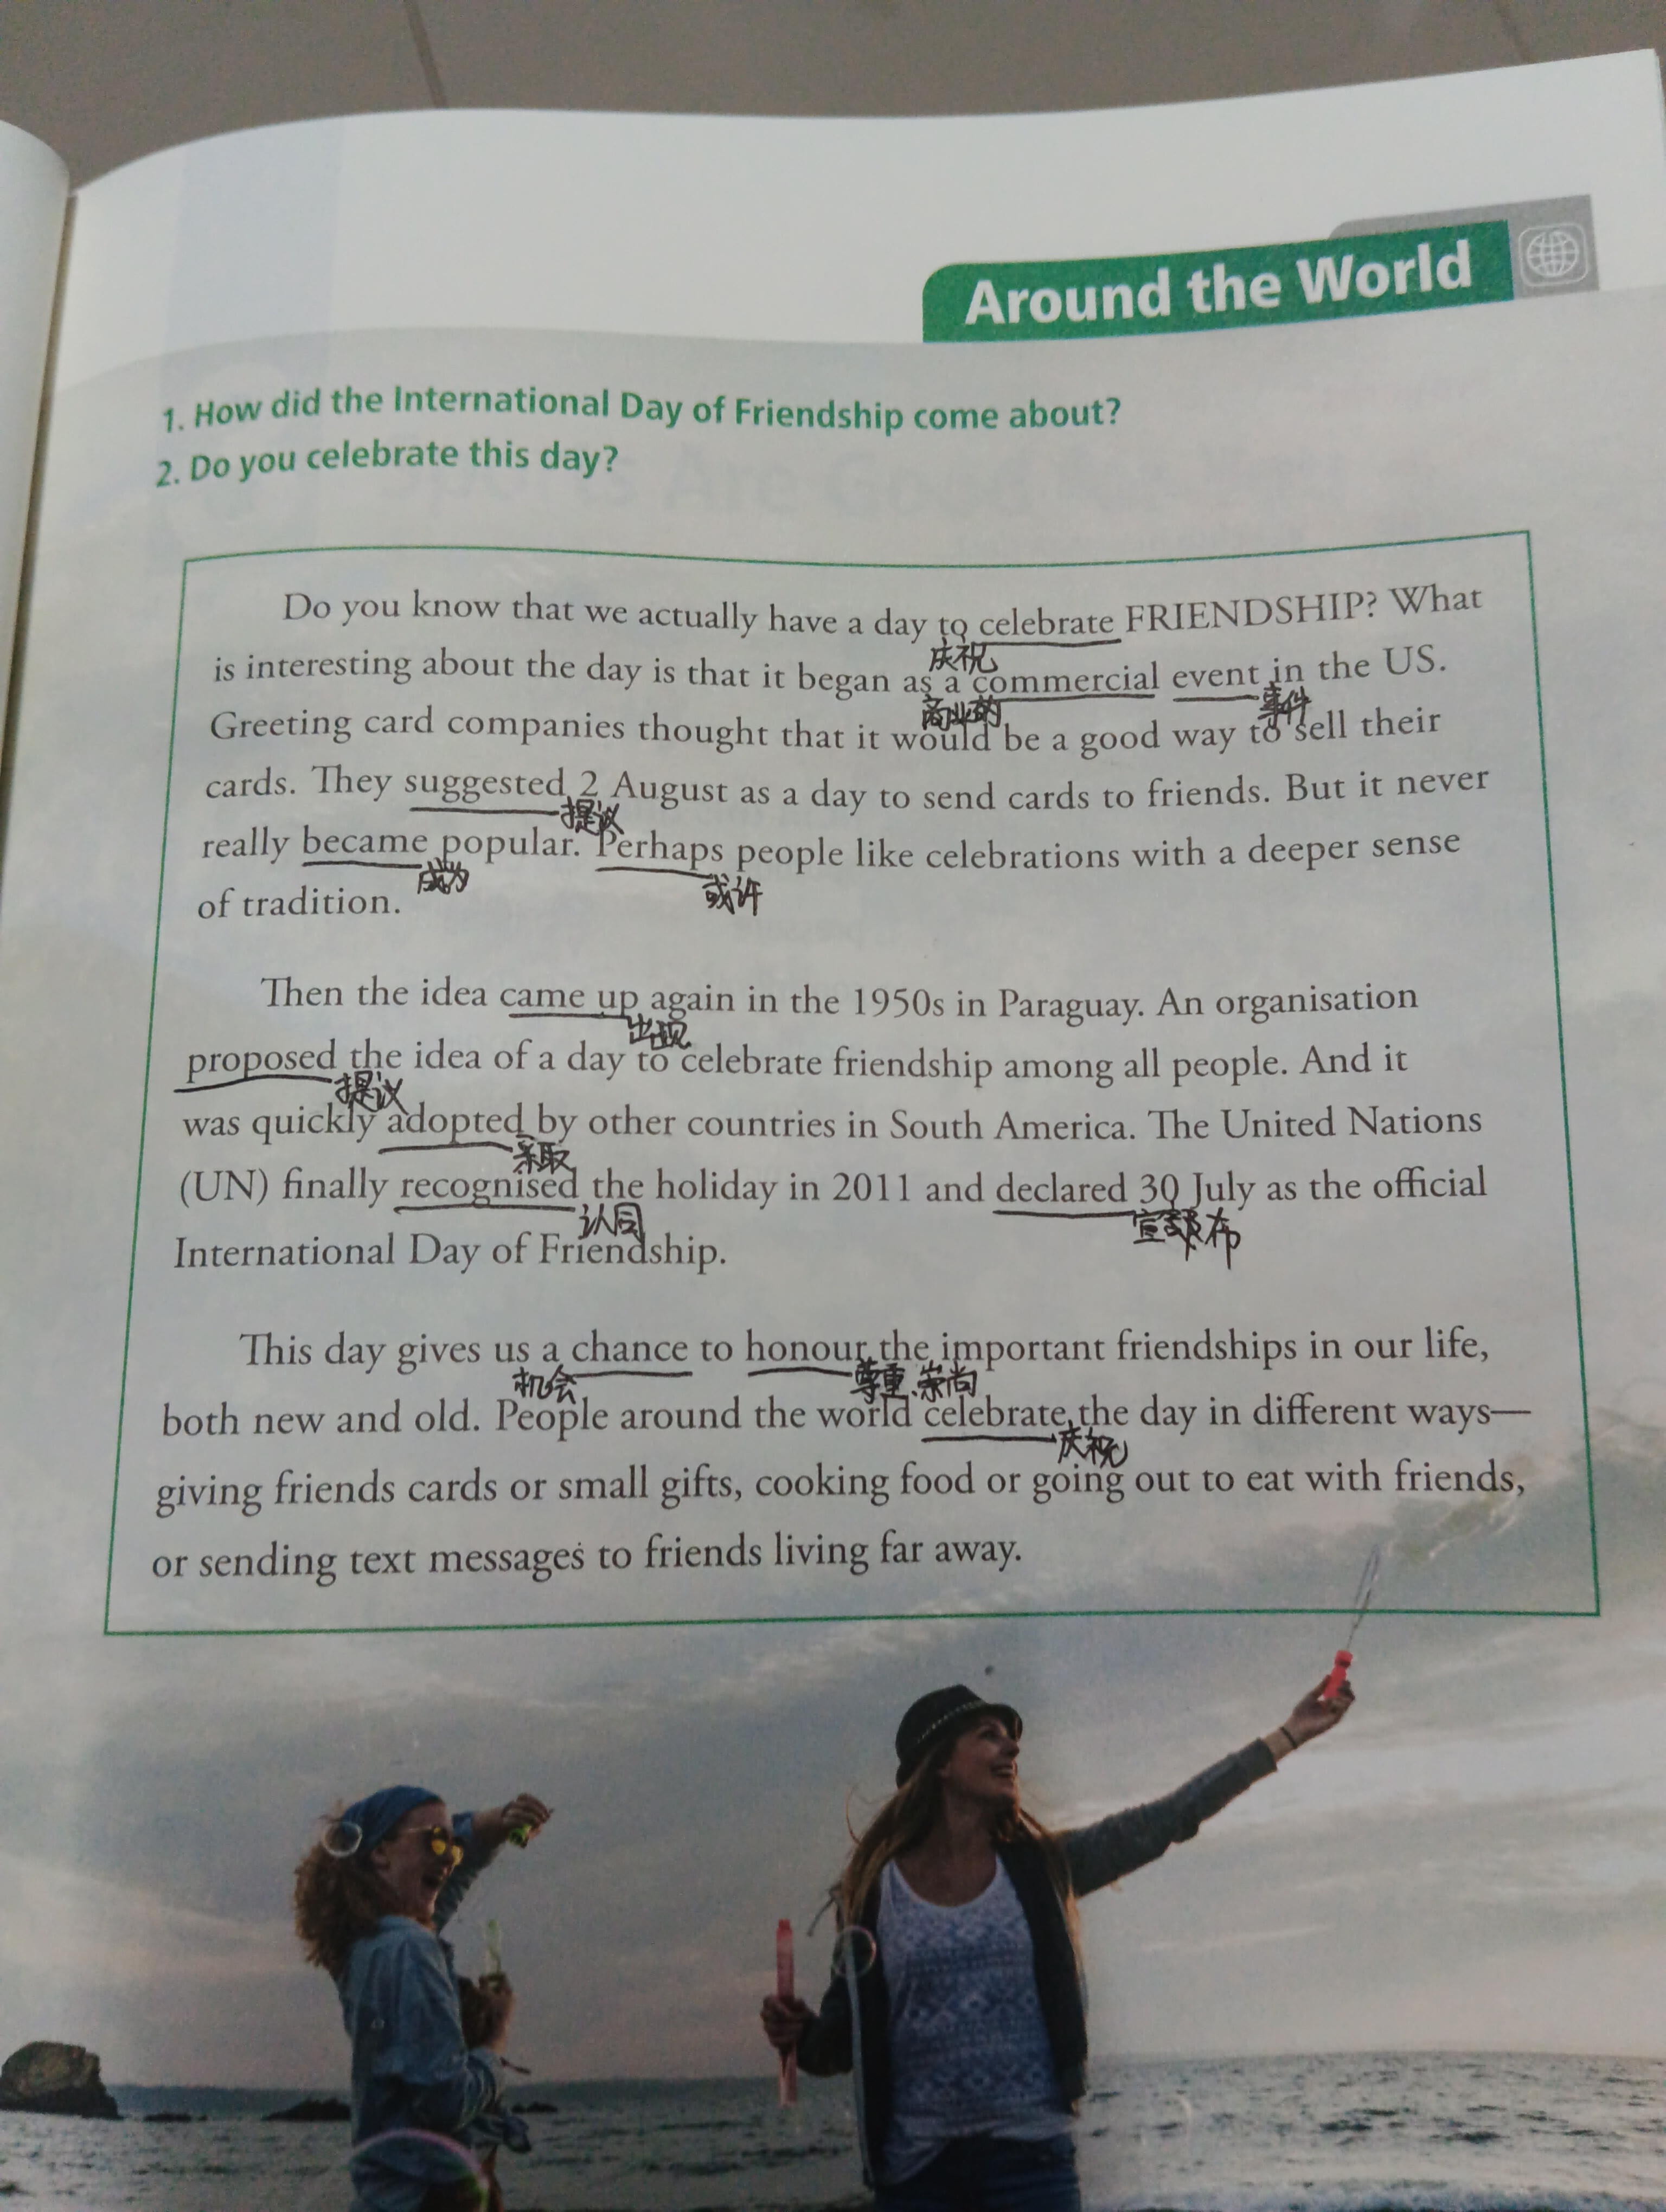 Around the World
1. How did the International Day of Friendship come about?
2. Do you celebrate this day?
Do you know that we actually have a day to celebrate FRIENDSHIP? What
庆祝
is interesting about the day is that it began as a commercial event in the US.
商业的 事件
Greeting card companies thought that it would be a good way to sell their
cards. They suggested 2 August as a day to send cards to friends. But it never
提议
really became popular. Perhaps people like celebrations with a deeper sense
成为 或许
of tradition.
Then the idea came up again in the 1950s in Paraguay. An organisation
出现
proposed the idea of a day to celebrate friendship among all people. And it
提议
was quickly adopted by other countries in South America. The United Nations
采取
(UN) finally recognised the holiday in 2011 and declared 30 July as the official
认同 宣布
International Day of Friendship.
This day gives us a chance to honour the important friendships in our life,
机会 尊重、崇尚
both new and old. People around the world celebrate the day in different ways—
庆祝
giving friends cards or small gifts, cooking food or going out to eat with friends,
or sending text messages to friends living far away.